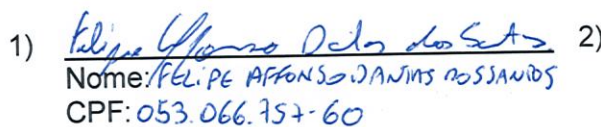 1) Felipe Affonso Dantas dos Santos 2)
Nome: FELIPE AFFONSO DANTAS DOS SANTOS
CPF: 053.066.757-60